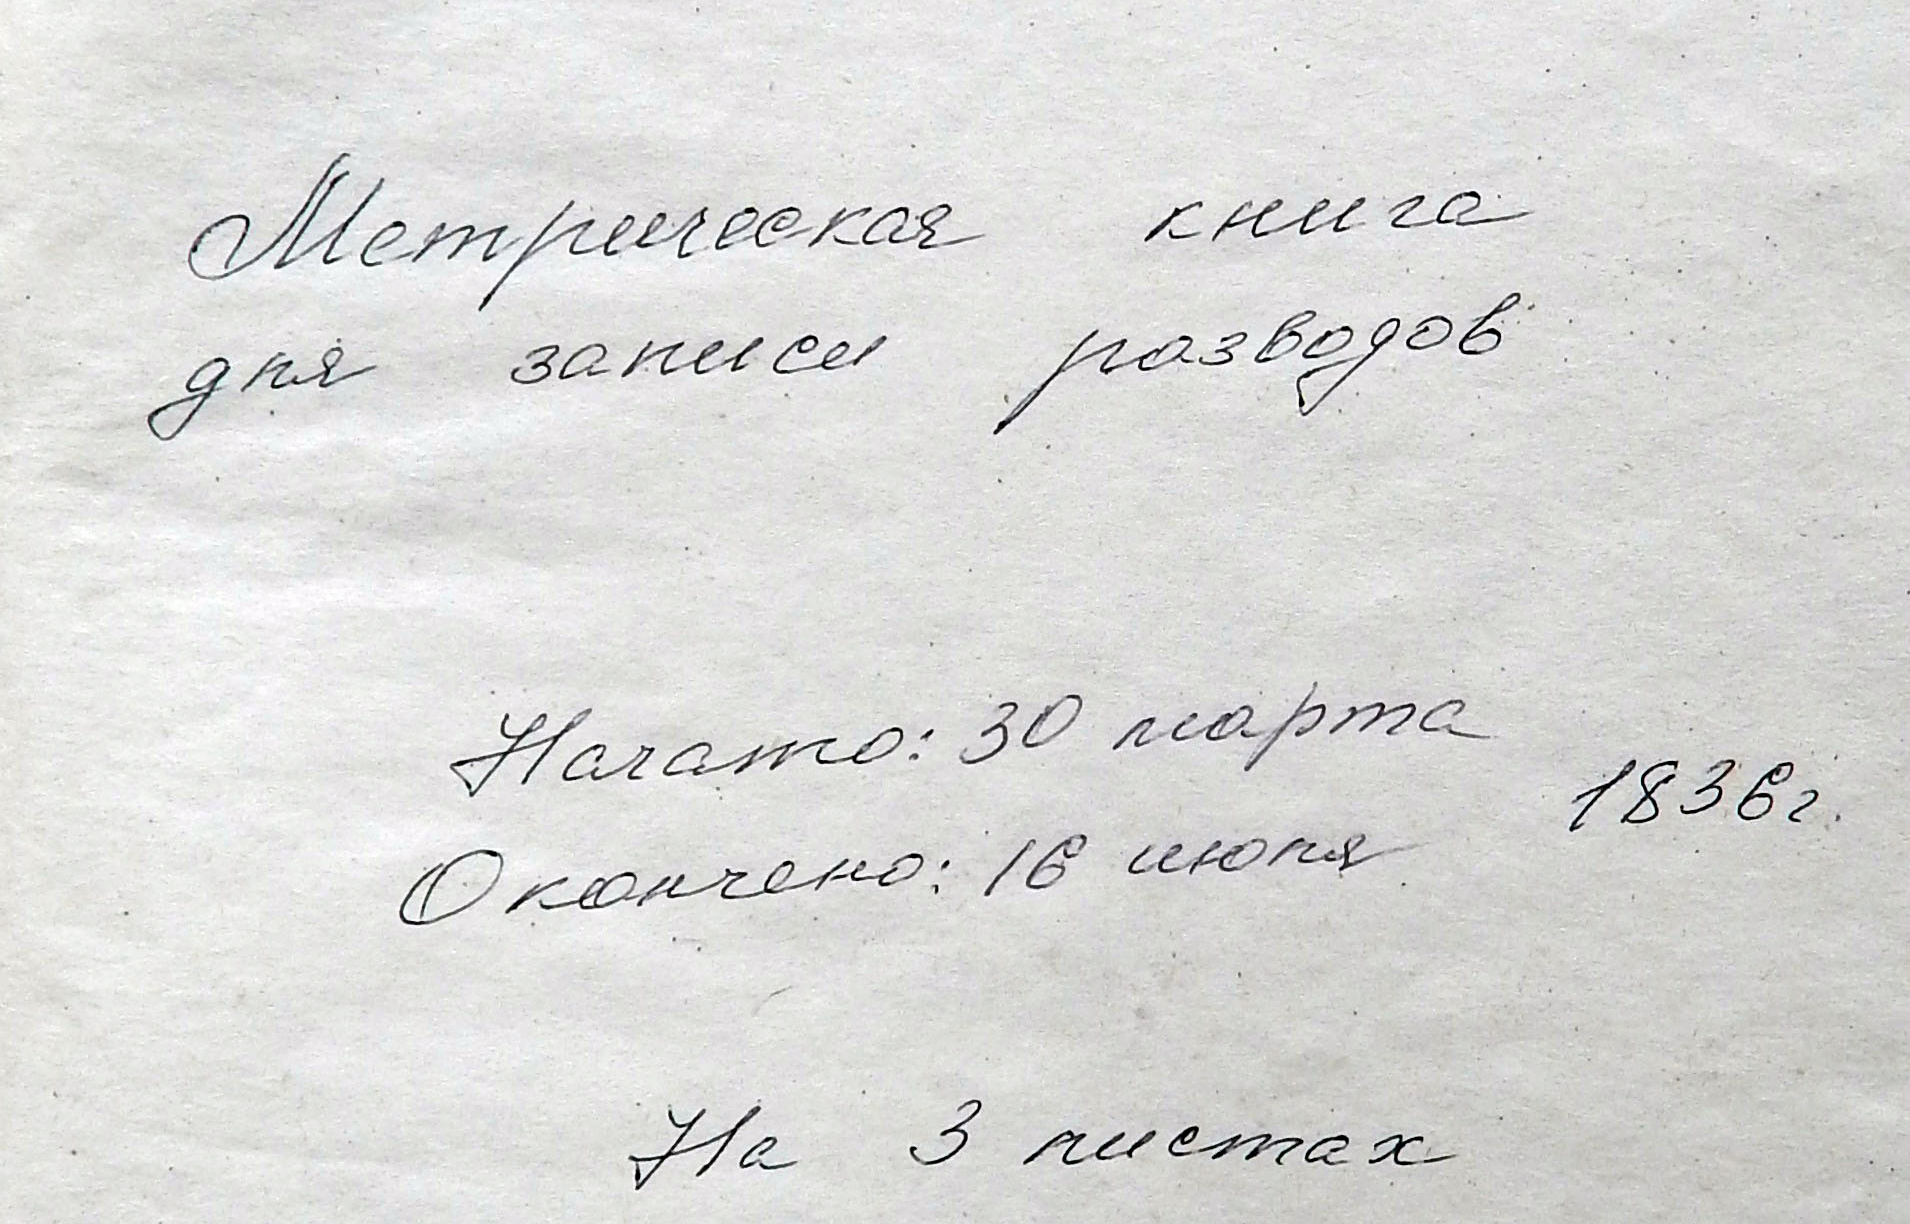 Метрическая книга
для записи разводов
Начато: 30 марта
1836г.
Окончено: 16 июля
На 3 листах